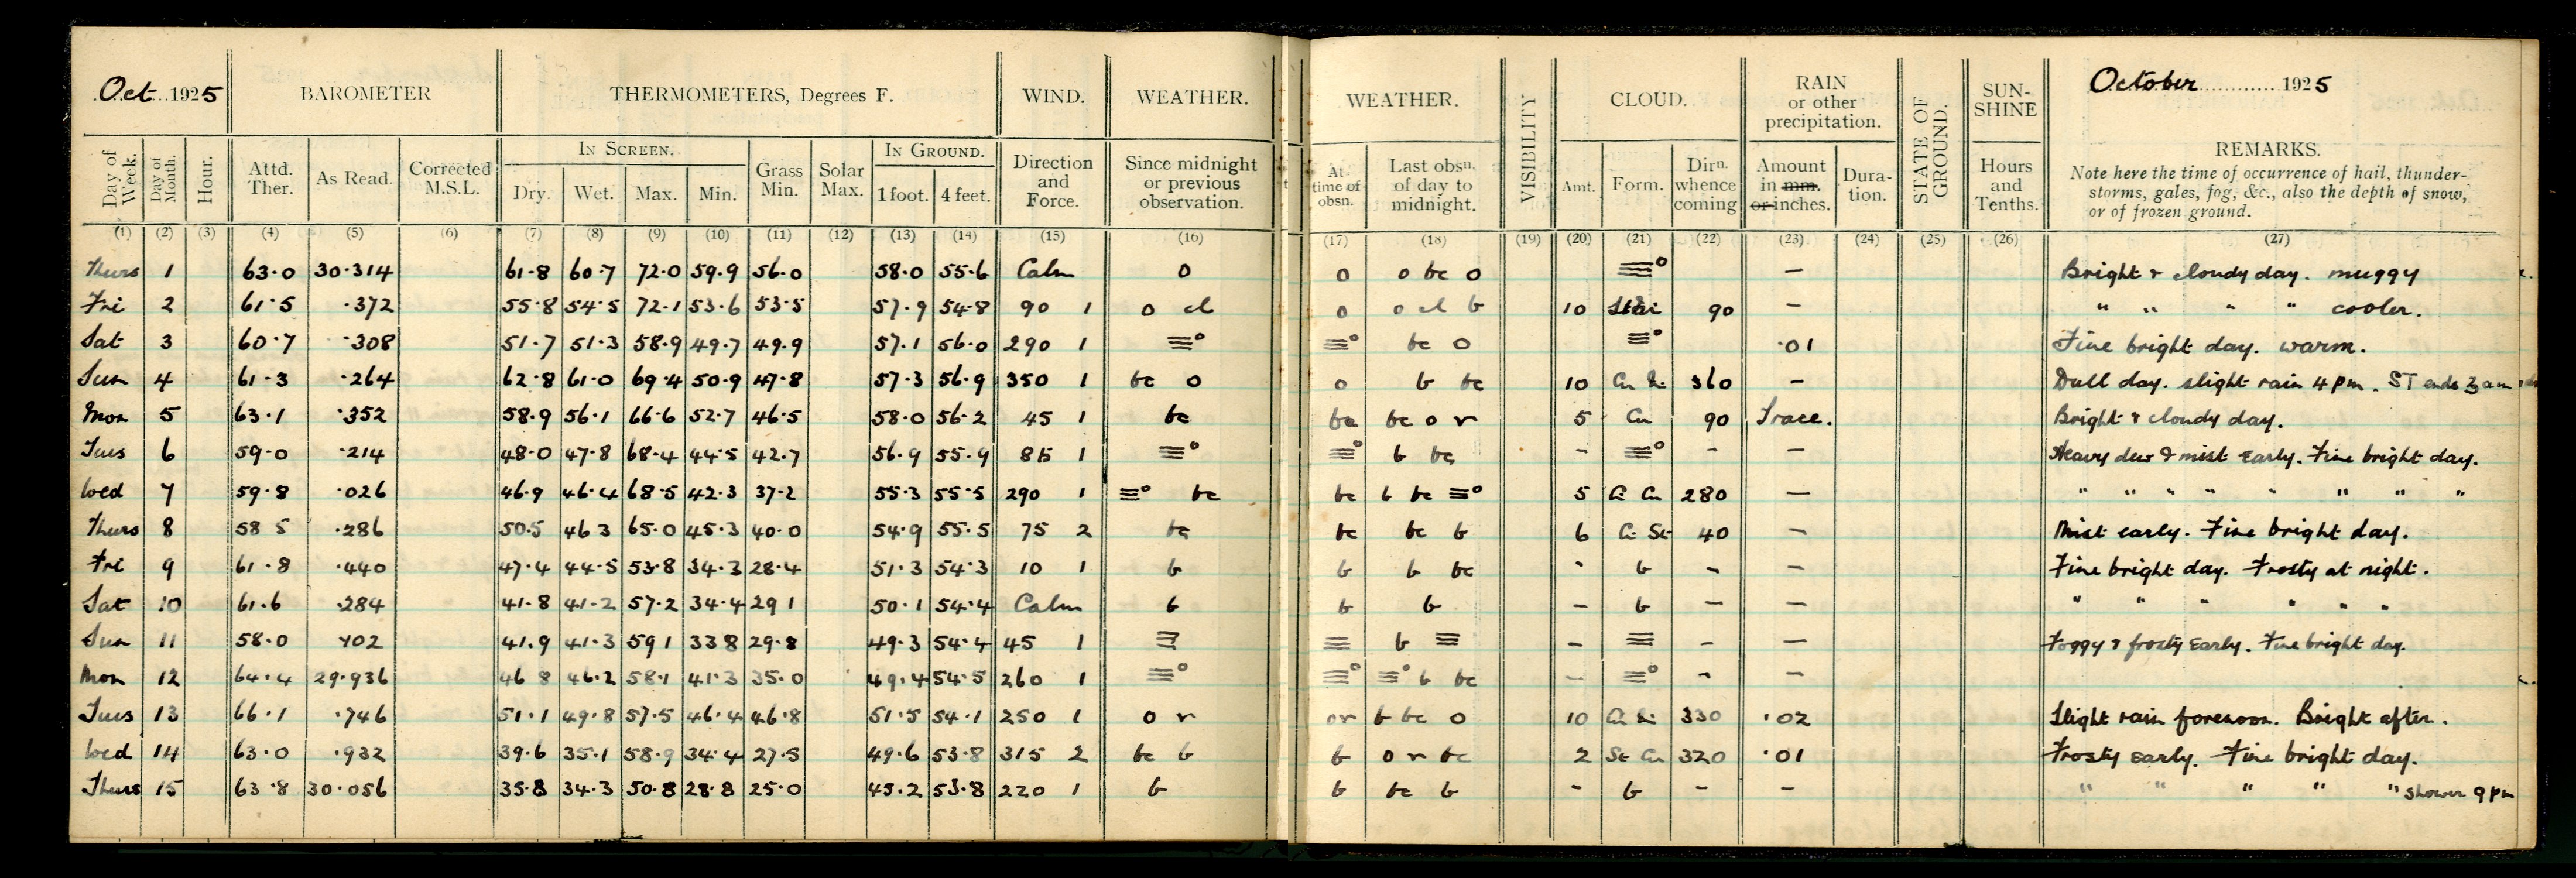 Oct 1925 BAROMETER THERMOMETERS, Degrees F. WIND. WEATHER. WEATHER. VISIBILITY CLOUD. RAIN or other precipitation. STATE OF GROUND. SUN-SHINE October 1925
Day of Week. Day of Month. Hour. Attd. Ther. As Read. Corrected M.S.L. IN SCREEN. Dry. Wet. Max. Min. Grass Min. Solar Max. IN GROUND. 1 foot. 4 feet. Direction and Force. Since midnight or previous observation. At time of obsn. Last obsn. of day to midnight. Amt. Form. Dirn. whence coming Amount in mm. or inches. Dura-tion. Hours and Tenths. REMARKS.
Note here the time of occurrence of hail, thunder-
storms, gales, fog, &c., also the depth of snow,
or of frozen ground.
(1) (2) (3) (4) (5) (6) (7) (8) (9) (10) (11) (12) (13) (14) (15) (16) (17) (18) (19) (20) (21) (22) (23) (24) (25) (26) (27)
Thurs 1 63.0 30.314 61.8 60.7 72.0 59.9 56.0 58.0 55.6 Calm o o o bc o ≡° — Bright & cloudy day. muggy
Fri 2 61.5 .372 55.8 54.5 72.1 53.6 53.5 57.9 54.8 90 1 o d o o d b 10 90 — " " " " cooler.
Sat 3 60.7 .308 51.7 51.3 58.9 49.7 49.9 57.1 56.0 290 1 ≡° ≡° bc o ≡° .01 Fine bright day. warm.
Sun 4 61.3 .264 62.8 61.0 69.4 50.9 47.8 57.3 56.9 350 1 bc o o b bc 10 Cu 360 — Dull day. slight rain 4 pm. ST ends 3 am
Mon 5 63.1 .352 58.9 56.1 66.6 52.7 46.5 58.0 56.2 45 1 bc bc bc o r 5 Cu 90 Trace. Bright & cloudy day.
Tues 6 59.0 .214 48.0 47.8 68.4 44.5 42.7 56.9 55.9 85 1 ≡° ≡° b bc - ≡° - — Heavy dew & mist early. Fine bright day.
Wed 7 59.8 .026 46.9 46.4 68.5 42.3 37.2 55.3 55.5 290 1 ≡° bc bc b bc ≡° 5 Ci Cu 280 — " " " " " " " "
Thurs 8 58 5 .286 50.5 46 3 65.0 45.3 40.0 54.9 55.5 75 2 bc bc bc b 6 Ci St 40 - Mist early. Fine bright day.
Fri 9 61.8 .440 47.4 44.5 53.8 34.3 28.4 51.3 54.3 10 1 b b b bc - b - — Fine bright day. Frosty at night.
Sat 10 61.6 .284 41.8 41.2 57.2 34.4 29 1 50.1 54.4 Calm b b b - b - — " " " " " "
Sun 11 58.0 .102 41.9 41.3 59 1 33 8 29.8 49.3 54.4 45 1 ≡ ≡ b ≡ - ≡ - — Foggy & frosty early. Fine bright day.
Mon 12 64.4 29.936 46 8 46.2 58.1 41.3 35.0 49.4 54.5 260 1 ≡° ≡° ≡° b bc - ≡° - —
Tues 13 66.1 .746 51.1 49.8 57.5 46.4 46.8 51.5 54.1 250 1 o r or b bc o 10 330 .02 Slight rain forenoon. Bright after.
Wed 14 63.0 .932 39.6 35.1 58.9 34.4 27.5 49.6 53.8 315 2 bc b b o r bc 2 St Cu 320 .01 Frosty early. Fine bright day.
Thurs 15 63.8 30.056 35.8 34.3 50.8 28.8 25.0 45.2 53.8 220 1 b b bc b - b - — " " " " " shower 9 pm